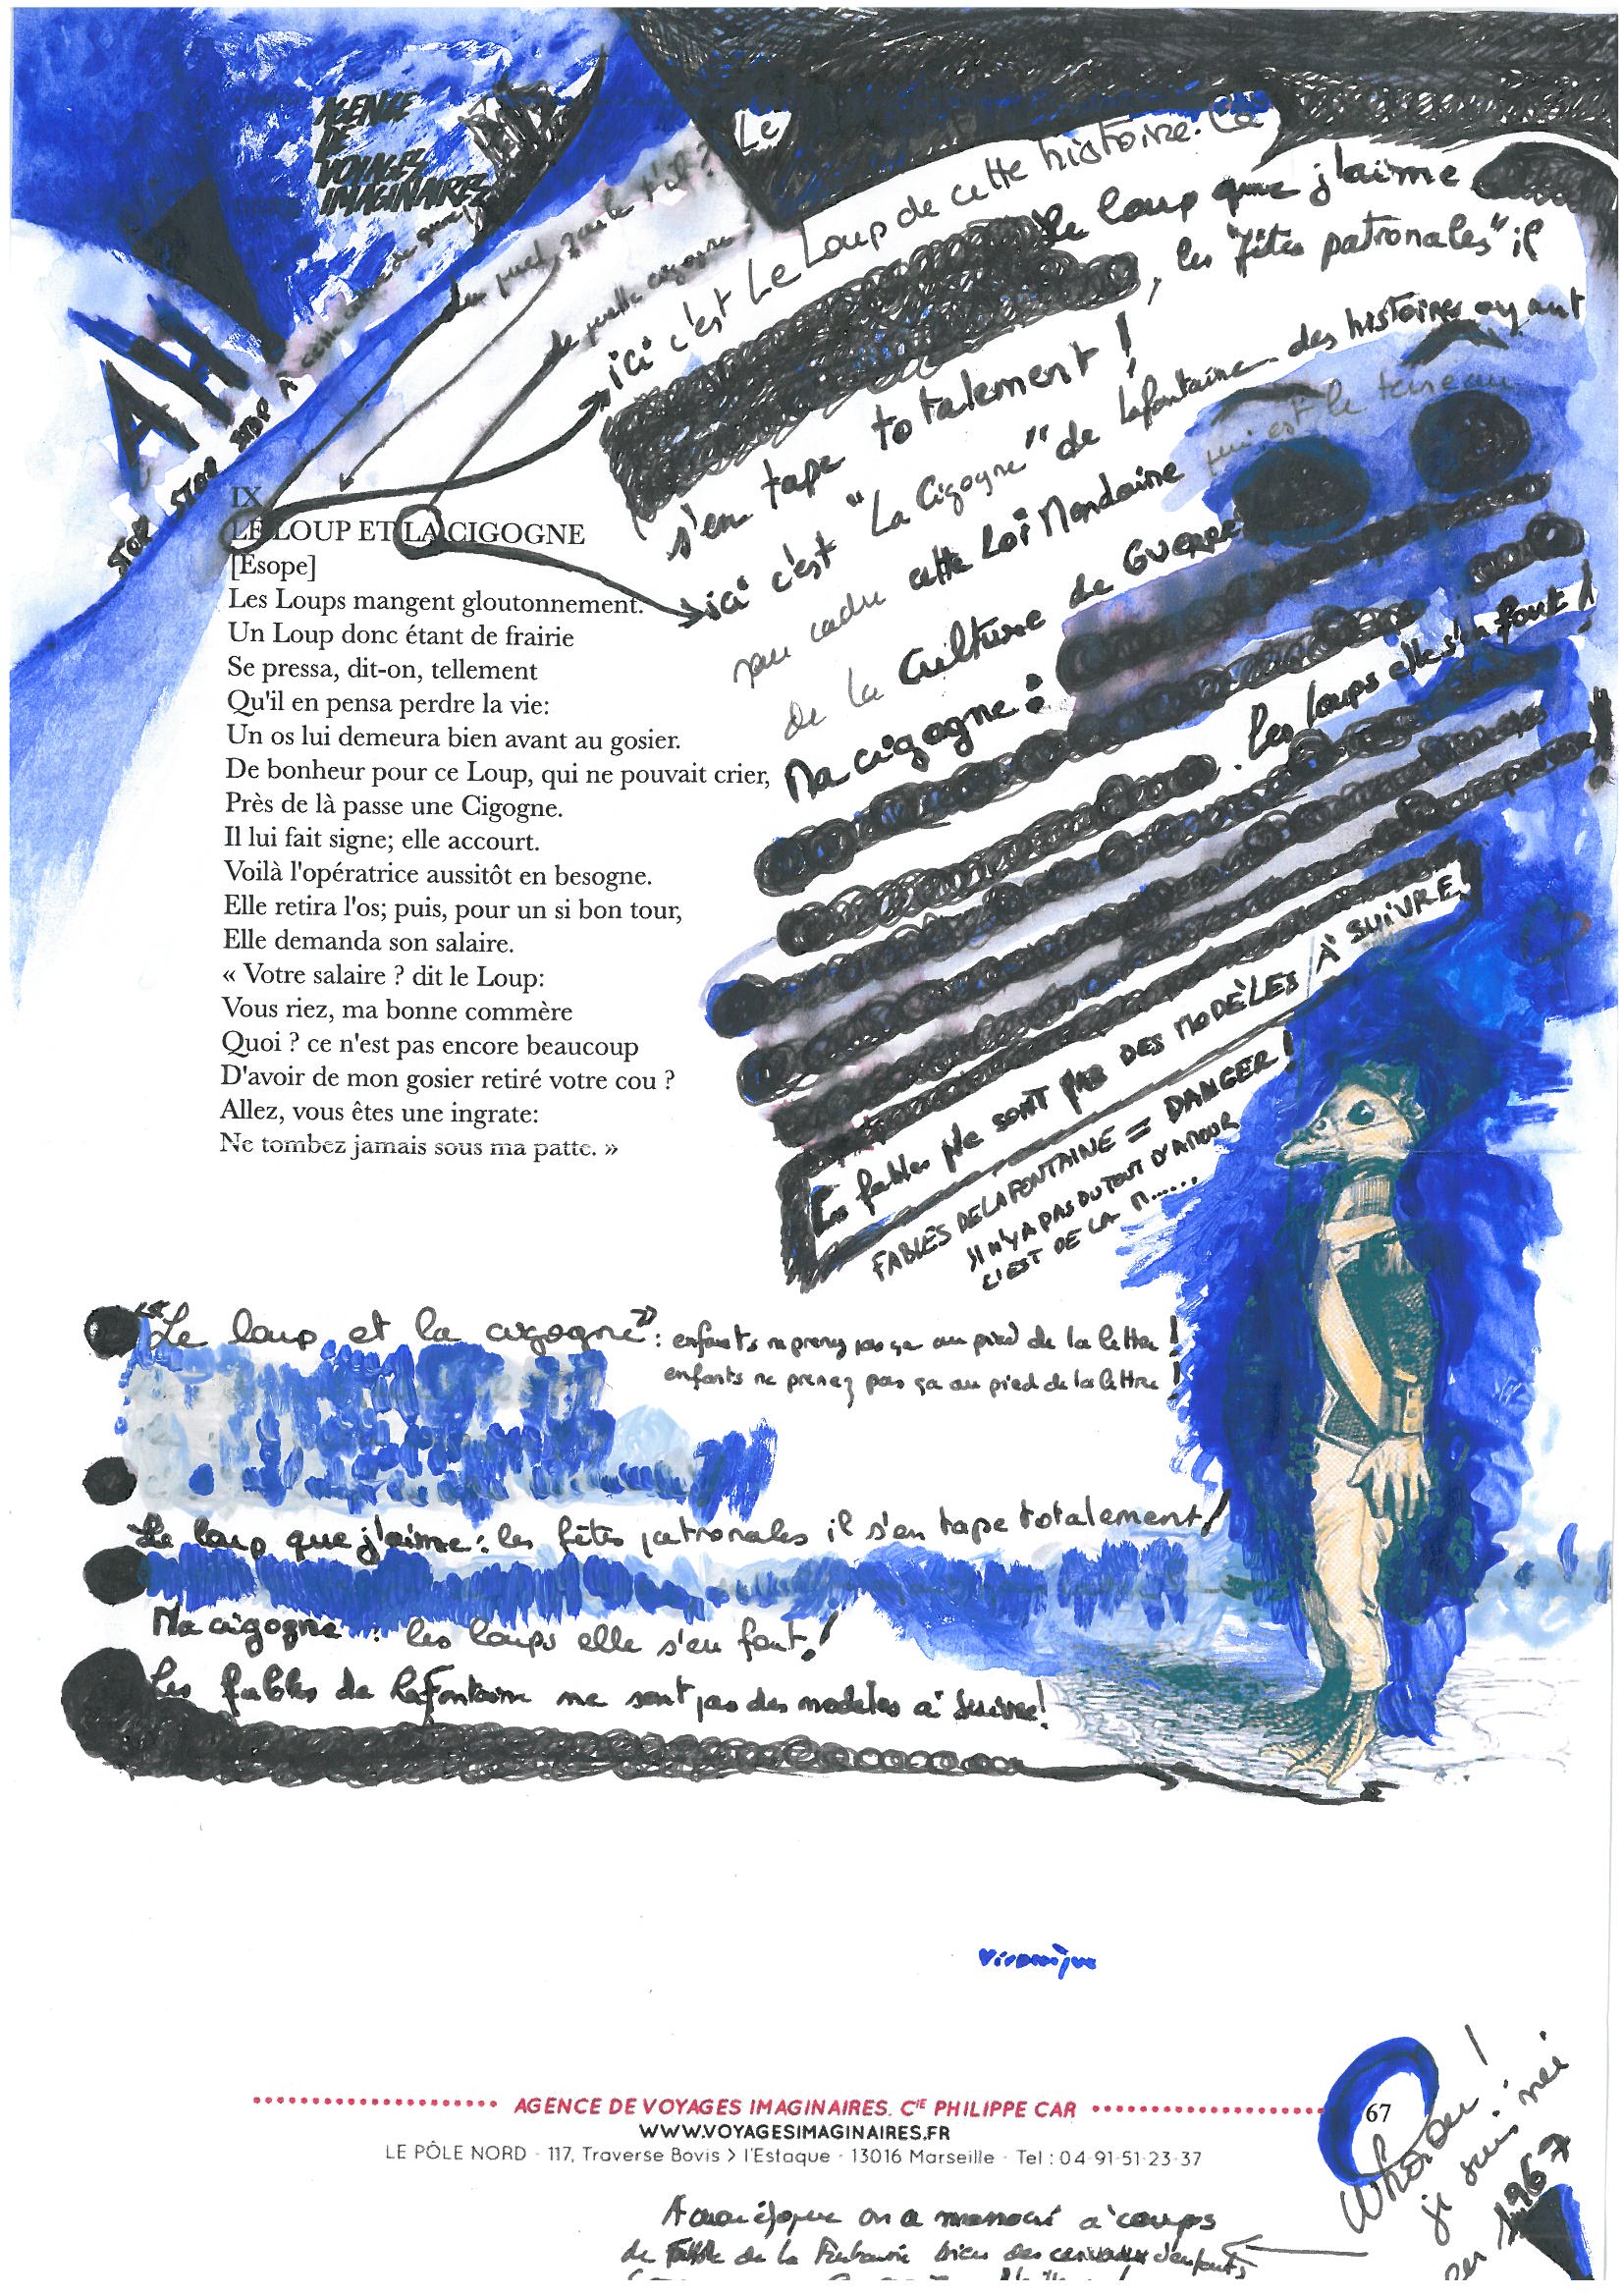 AGENCE
DE
VOYAGES
IMAGINAIRES
AH!
STOP STOP STOP À
de quelle cigogne
Le
ici c'est Le Loup de cette histoire. Ce
le loup que j'aime
, les "fêtes patronales" il
s'en tape totalement !
ici c'est "La Cigogne" de Lafontaine des histoires ayant
pour cadre cette Loi Mondaine qui est le terreau
de la Culture de Guerre
Ma cigogne :
. les loups elle s'en fout !
Les fables ne sont pas DES MODÈLES À SUIVRE!
FABLES DE LA FONTAINE = DANGER !
IL N'Y A PAS DU TOUT D'AMOUR
C'EST DE LA M......
IX
LE LOUP ET LA CIGOGNE
[Esope]
Les Loups mangent gloutonnement.
Un Loup donc étant de frairie
Se pressa, dit-on, tellement
Qu'il en pensa perdre la vie:
Un os lui demeura bien avant au gosier.
De bonheur pour ce Loup, qui ne pouvait crier,
Près de là passe une Cigogne.
Il lui fait signe; elle accourt.
Voilà l'opératrice aussitôt en besogne.
Elle retira l'os; puis, pour un si bon tour,
Elle demanda son salaire.
« Votre salaire ? dit le Loup:
Vous riez, ma bonne commère
Quoi ? ce n'est pas encore beaucoup
D'avoir de mon gosier retiré votre cou ?
Allez, vous êtes une ingrate:
Ne tombez jamais sous ma patte. »
"Le loup et la cigogne" : enfants ne prenez pas ça au pied de la lettre !
enfants ne prenez pas ça au pied de la lettre !
Le loup que j'aime : les fêtes patronales il s'en tape totalement !
Ma cigogne : les loups elle s'en fout !
Les fables de LaFontaine ne sont pas des modèles à suivre!
Véronique
AGENCE DE VOYAGES IMAGINAIRES. CIE PHILIPPE CAR
WWW.VOYAGESIMAGINAIRES.FR
LE PÔLE NORD - 117, Traverse Bovis > l'Estaque - 13016 Marseille - Tel : 04-91-51-23-37
67
Whaou !
je suis née
en 1967
époque on a massacré à coups
de Fable de la Fontaine bien des cerveaux d'enfants